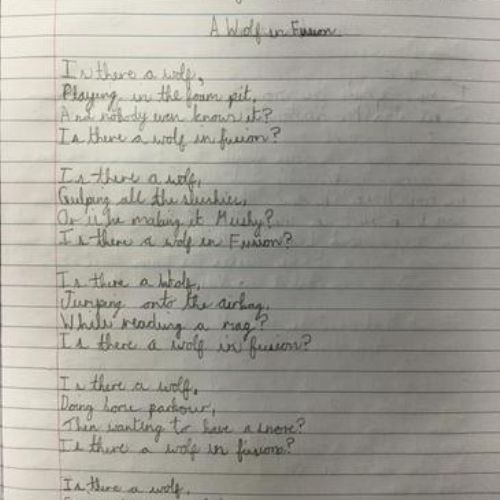 A Wolf in Fusion
Is there a wolf,
Playing in the foam pit,
And nobody even knows it?
Is there a wolf in fusion?
Is there a wolf,
Gulping all the slushies,
Or is he making it Mushy?
Is there a wolf in Fusion?
Is there a Wolf,
Jumping onto the airbag,
While reading a mag?
Is there a wolf in fusion?
Is there a wolf,
Doing some parkour,
Then wanting to have a snore?
Is there a wolf in fusion?
Is there a wolf,